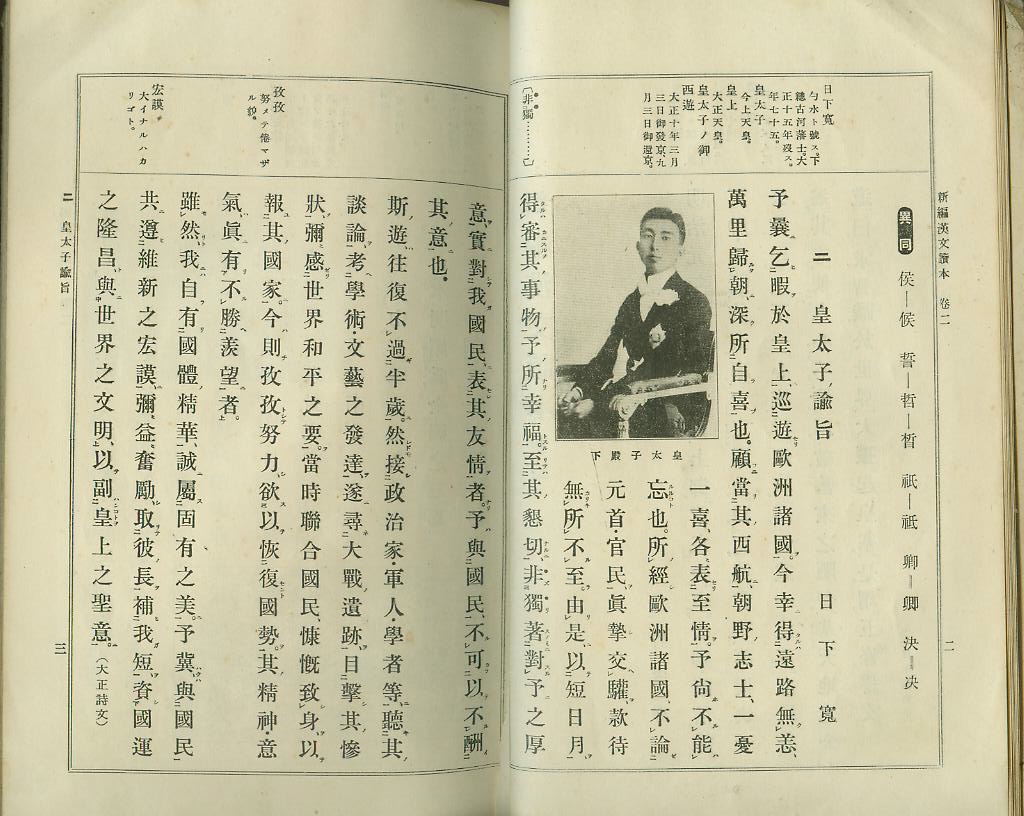 新編漢文讀本 卷二
二
異同 侯―候 誓―哲―晳 祇―祗 卿＝卿 決＝决
日下寬
勺水ト號ス。下
總古河藩士。大
正十五年歿ス。
年七十五。
皇太子
今上天皇。
皇上
大正天皇。
皇太子ノ御
西遊
大正十年三月
三日御發京、九
月三日御還京。
〔非獨………〕
二 皇太子諭旨 日下寬
予曩乞暇於皇上、巡遊歐洲諸國。今幸得遠路無恙、
萬里歸朝、深所自喜也。顧當其西航、朝野志士、一憂
一喜、各表至情。予尙不能
忘也。所經歐洲諸國、不論
元首・官民、眞摯交驩、款待
無所不至。由是、以短日月、
皇太子殿下
得審其事物、予所幸福。至其懇切、非獨著對予之厚
意、實對我國民、表其友情者。予與國民、不可以不酬
其意也。
斯遊、往復不過半歲。然接政治家・軍人・學者等、聽其
談論、考學術・文藝之發達、遂尋大戰遺跡、目擊其慘
狀、彌感世界和平之要。當時聯合國民、慷慨致身、以
報其國家。今則孜孜努力、欲以恢復國勢。其精神・意
氣、眞有不勝羨望者。
雖然、我自有國體精華、誠屬固有之美。予冀與國民
共遵維新之宏謨、彌益奮勵、取彼長補我短、資國運
之隆昌、與世界之文明、以副皇上之聖意。（大正詩文）
孜孜
努メテ倦マザ
ル貌。
宏謨
大イナルハカ
リゴト。
二 皇太子諭旨
三